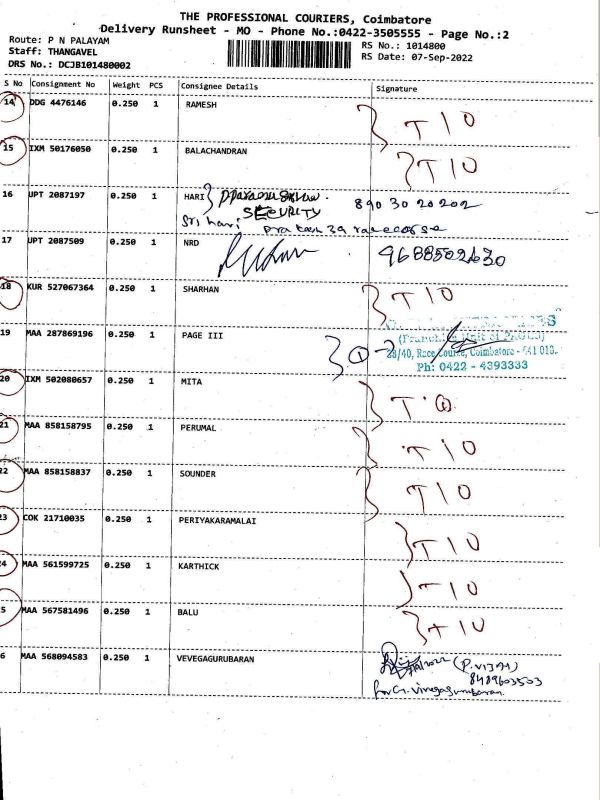 THE PROFESSIONAL COURIERS, Coimbatore
Delivery Runsheet - MO - Phone No.:0422-3505555 - Page No.:2
Route: P N PALAYAM
Staff: THANGAVEL
DRS No.: DCJB101480002
RS No.: 1014800
RS Date: 07-Sep-2022
S No Consignment No Weight PCS Consignee Details Signature
14 DDG 4476146 0.250 1 RAMESH T10
15 IXM 50176050 0.250 1 BALACHANDRAN T10
16 UPT 2087197 0.250 1 HARI 89030 20202
SECURITY
Sri hari
17 UPT 2087509 0.250 1 NRD
18 KUR 527067364 0.250 1 SHARHAN T10
19 MAA 287869196 0.250 1 PAGE III
23/40, Race Course, Coimbatore - 641 018.
Ph: 0422 - 4393333
20 IXM 502080657 0.250 1 MITA
21 MAA 858158795 0.250 1 PERUMAL T10
22 MAA 858158837 0.250 1 SOUNDER T10
23 COK 21710035 0.250 1 PERIYAKARAMALAI T10
24 MAA 561599725 0.250 1 KARTHICK T10
5 MAA 567581496 0.250 1 BALU T10
6 MAA 568094583 0.250 1 VEVEGAGURUBARAN (P.VIJAY)
8489603503